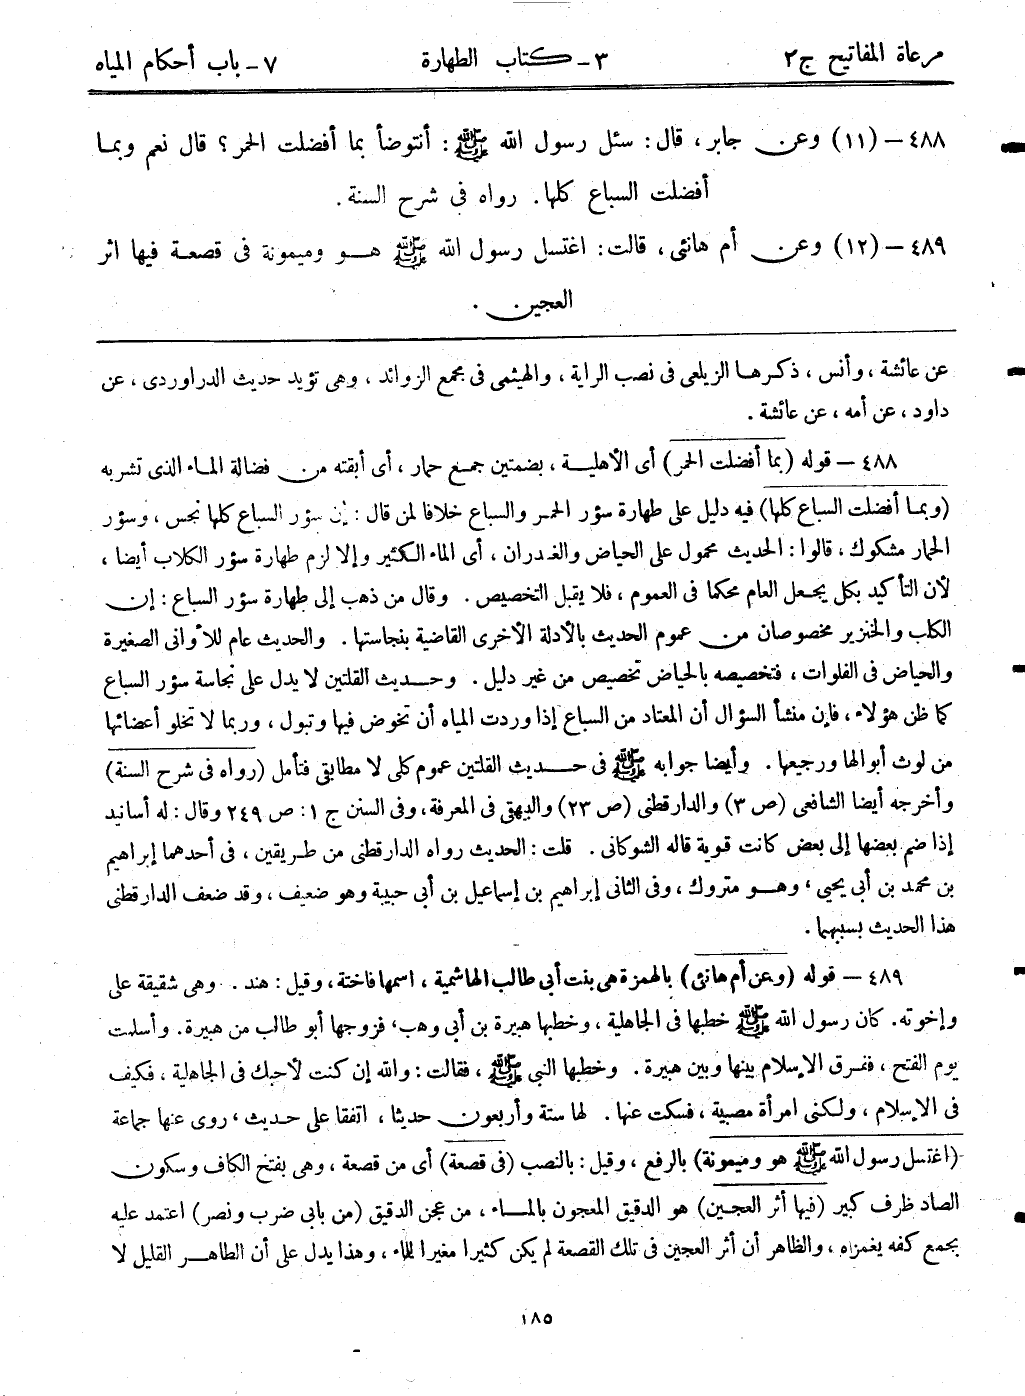 مرعاة المفاتيح ج٢ ٣ـ كتاب الطهارة ٧ـ باب أحكام المياه
٤٨٨ – (١١) وعن جابر، قال: سئل رسول الله ﷺ: أنتوضأ بما أفضلت الحمر؟ قال نعم وبما
أفضلت السباع كلها. رواه فى شرح السنة.
٤٨٩ – (١٢) وعن أم هانئى، قالت: اغتسل رسول الله ﷺ هو وميمونة فى قصعة فيها اثر
العجين.
عن عائشة، وأنس، ذكرها الزيلعى فى نصب الراية، والهيثمى فى مجمع الزوائد، وهى تؤيد حديث الدراوردى، عن
داود، عن أمه، عن عائشة.
٤٨٨ – قوله (بما أفضلت الحمر) أى الأهلية، بضمتين جمع حمار، أى أبقته من فضالة الماء الذى تشربه
(وبما أفضلت السباع كلها) فيه دليل على طهارة سؤر الحمر والسباع خلافا لمن قال: إن سؤر السباع كلها نجس، وسؤر
الحمار مشكوك، قالوا: الحديث محمول على الحياض والغدران، أى الماء الكثير وإلا لزم طهارة سؤر الكلاب أيضا،
لأن التأكيد بكل يجعل العام محكما فى العموم، فلا يقبل التخصيص. وقال من ذهب إلى طهارة سؤر السباع: إن
الكلب والخنزير مخصوصان من عموم الحديث بالأدلة الأخرى القاضية بنجاستها. والحديث عام للأوانى الصغيرة
والحياض فى الفلوات، فتخصيصه بالحياض تخصيص من غير دليل. وحديث القلتين لا يدل على نجاسة سؤر السباع
كما ظن هؤلاء، فإن منشأ السؤال أن المعتاد من السباع إذا وردت المياه أن تخوض فيها وتبول، وربما لا تخلو أعضائها
من لوث أبوالها ورجيعها. وأيضا جوابه ﷺ فى حديث القلتين عموم كلى لا مطابقى فتأمل (رواه فى شرح السنة)
وأخرجه أيضا الشافعى (ص ٣) والدارقطنى (ص ٢٣) والبيهقى فى المعرفة، وفى السنن ج ١: ص ٢٤٩ وقال: له أسانيد
إذا ضم بعضها إلى بعض كانت قوية قاله الشوكانى. قلت: الحديث رواه الدارقطنى من طريقين، فى أحدهما إبراهيم
بن محمد بن أبي يحيى، وهو متروك، وفى الثانى إبراهيم بن إسماعيل بن أبى حبيبة وهو ضعيف، وقد ضعف الدارقطنى
هذا الحديث بسببهما.
٤٨٩ – قوله (وعن أم هانئى) بالهمزة هى بنت أبي طالب الهاشمية، اسمها فاختة، وقيل: هند. وهى شقيقة على
وإخوته. كان رسول الله ﷺ خطبها فى الجاهلية، وخطبها هبيرة بن أبى وهب، فزوجها أبو طالب من هبيرة. وأسلمت
يوم الفتح، ففرق الإسلام بينها وبين هبيرة. وخطبها النبى ﷺ، فقالت: والله إن كنت لأحبك فى الجاهلية، فكيف
فى الإسلام، ولكنى امرأة مصبية، فسكت عنها. لها ستة وأربعون حديثا، اتفقا على حديث، روى عنها جماعة
(اغتسل رسول الله ﷺ هو وميمونة) بالرفع، وقيل: بالنصب (فى قصعة) أى من قصعة، وهى بفتح القاف وسكون
الصاد ظرف كبير (فيها أثر العجين) هو الدقيق المعجون بالماء، من عجن الدقيق (من بابى ضرب ونصر) اعتمد عليه
بجمع كفه يغمزه، والظاهر أن أثر العجين فى تلك القصعة لم يكن كثيرا مغيرا للماء، وهذا يدل على أن الطاهر القليل لا
١٨٥